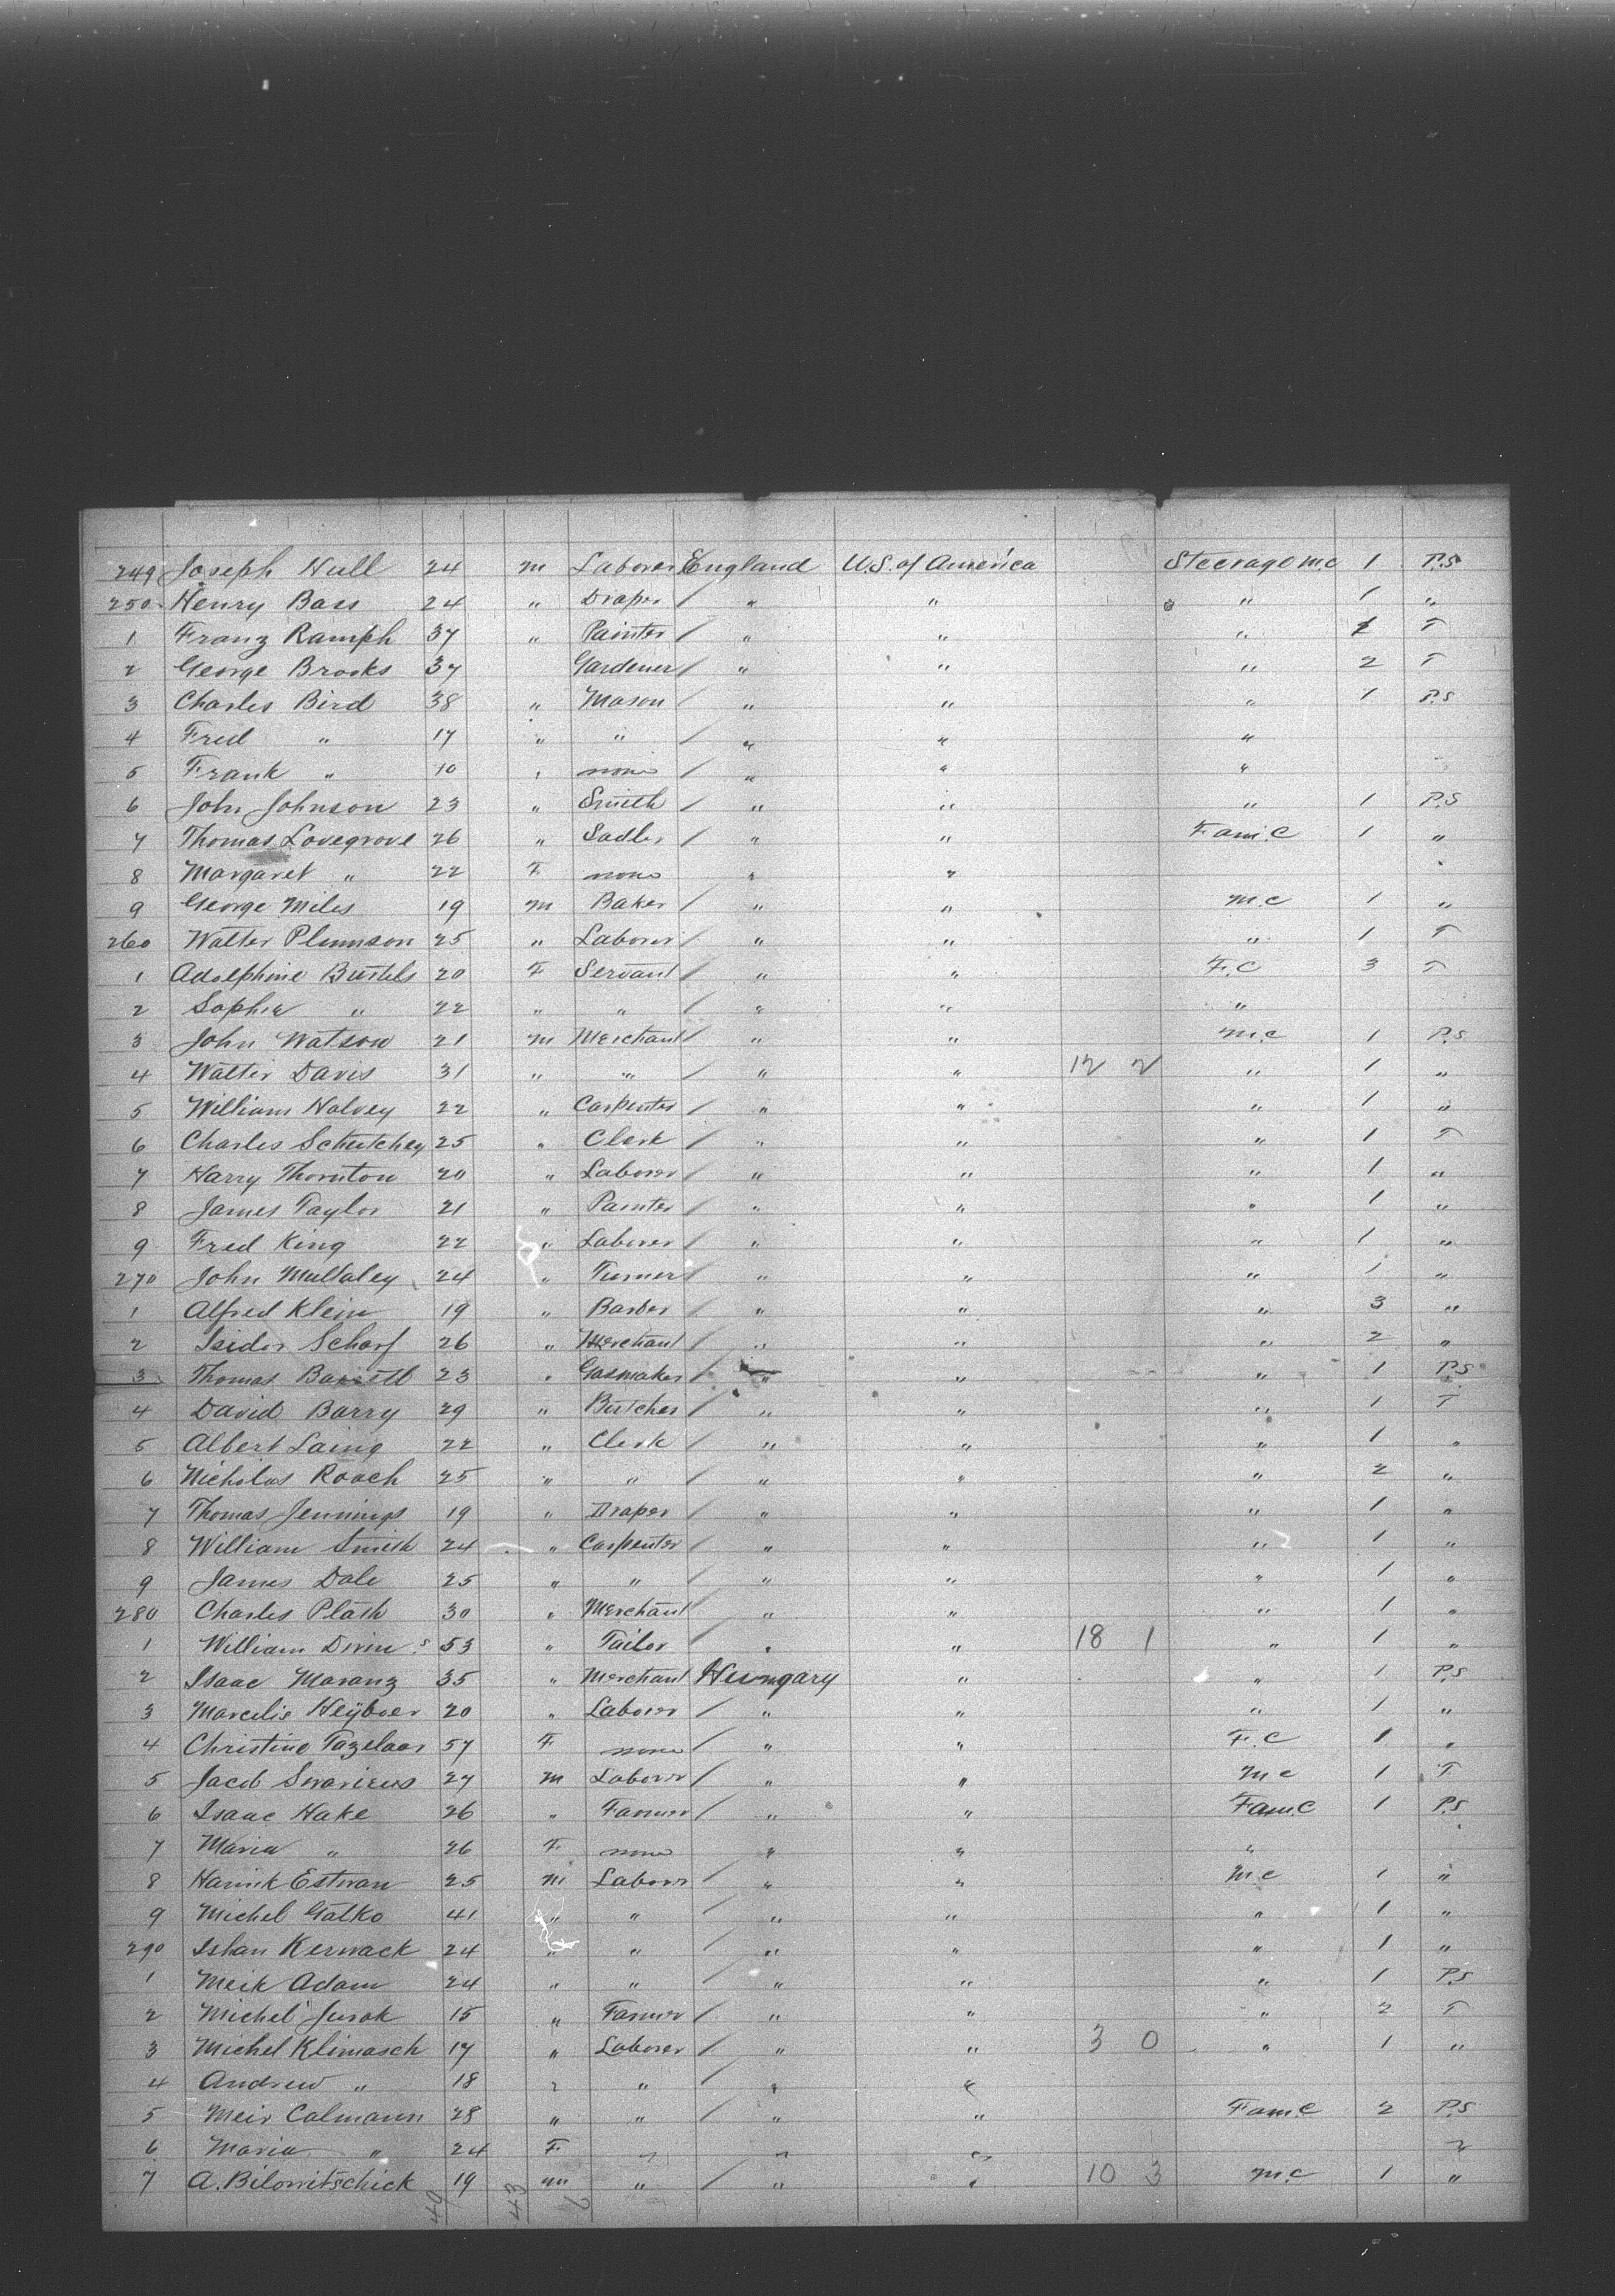 249 Joseph Hull 24 m Laborer England U.S. of America Steerage m.c 1 P.S
250 Henry Bass 24 " Draper / " " " 1 "
1 Franz Ramph 37 " Painter / " " " 1 T
2 George Brooks 37 Gardener / " " " 2 T
3 Charles Bird 38 " Mason / " " " 1 P.S
4 Fred " 17 " " / " " "
5 Frank " 10 " none / " " "
6 John Johnson 23 " Smith / " " " 1 P.S
7 Thomas Lovegrove 26 " Sadler / " " Fam.C 1 "
8 Margaret " 22 F none " "
9 George Miles 19 m Baker / " " m.c 1 "
260 Walter Plumson 25 " Laborer / " " " 1 T
1 Adolphine Bustels 20 F Servant / " " F.C 3 T
2 Sophie " 22 " " / " " "
3 John Watson 21 m Merchant / " " m.c 1 P.S
4 Walter Davis 31 " " / " " 12 2 " 1 "
5 William Halvey 22 " Carpenter / " " " 1 "
6 Charles Schutchey 25 " Clerk / " " " 1 T
7 Harry Thornton 20 " Laborer / " " " 1 "
8 James Taylor 21 " Painter / " " " 1 "
9 Fred King 22 " Laborer / " " " 1 "
270 John Mullaley 24 " Turner / " " " 1 "
1 Alfred Klein 19 " Barber / " " " 3 "
2 Isidor Scharf 26 " Merchant / " " " 2 "
3 Thomas 23 " Gasmaker / " " " 1 P.S
4 David Barry 29 " Butcher / " " " 1 T
5 Albert Laing 22 " Clerk / " " " 1 "
6 Nicholas Roach 25 " " / " " " 2 "
7 Thomas Jennings 19 " Draper / " " " 1 "
8 William Smith 24 " Carpenter / " " " 1 "
9 James Dale 25 " " / " " " 1 "
280 Charles Plath 30 " Merchant " " " 1 "
1 William 53 " Tailor / " " 18 1 " 1 "
2 Isaac Maranz 35 " Merchant Hungary " " 1 P.S
3 Marcelis Heijboer 20 " Laborer / " " " 1 "
4 Christine Tazelaar 57 F none / " " F.C 1 "
5 Jacob 27 m Laborer / " " m c 1 T
6 Isaac Hake 26 " Farmer / " " Fam.C 1 P.S
7 Maria " 26 F none " " "
8 Estwan 25 m Laborer / " " m c 1 "
9 Michel Gatko 41 " " / " " " 1 "
290 Ishan Kerwack 24 " " / " " " 1 "
1 Meik Adam 24 " " / " " " 1 P.S
2 Michel Jurak 15 " Farmer / " " " 2 T
3 Michel Klimasch 17 " Laborer / " " 3 0 " 1 "
4 Andrew " 18 " " / " "
5 Meir Calmann 28 " " / " " Fam.C 2 P.S
6 Maria " 24 F " " " "
7 A. Bilowitschick 19 m " / " " 10 3 m.c 1 "
40 43 6